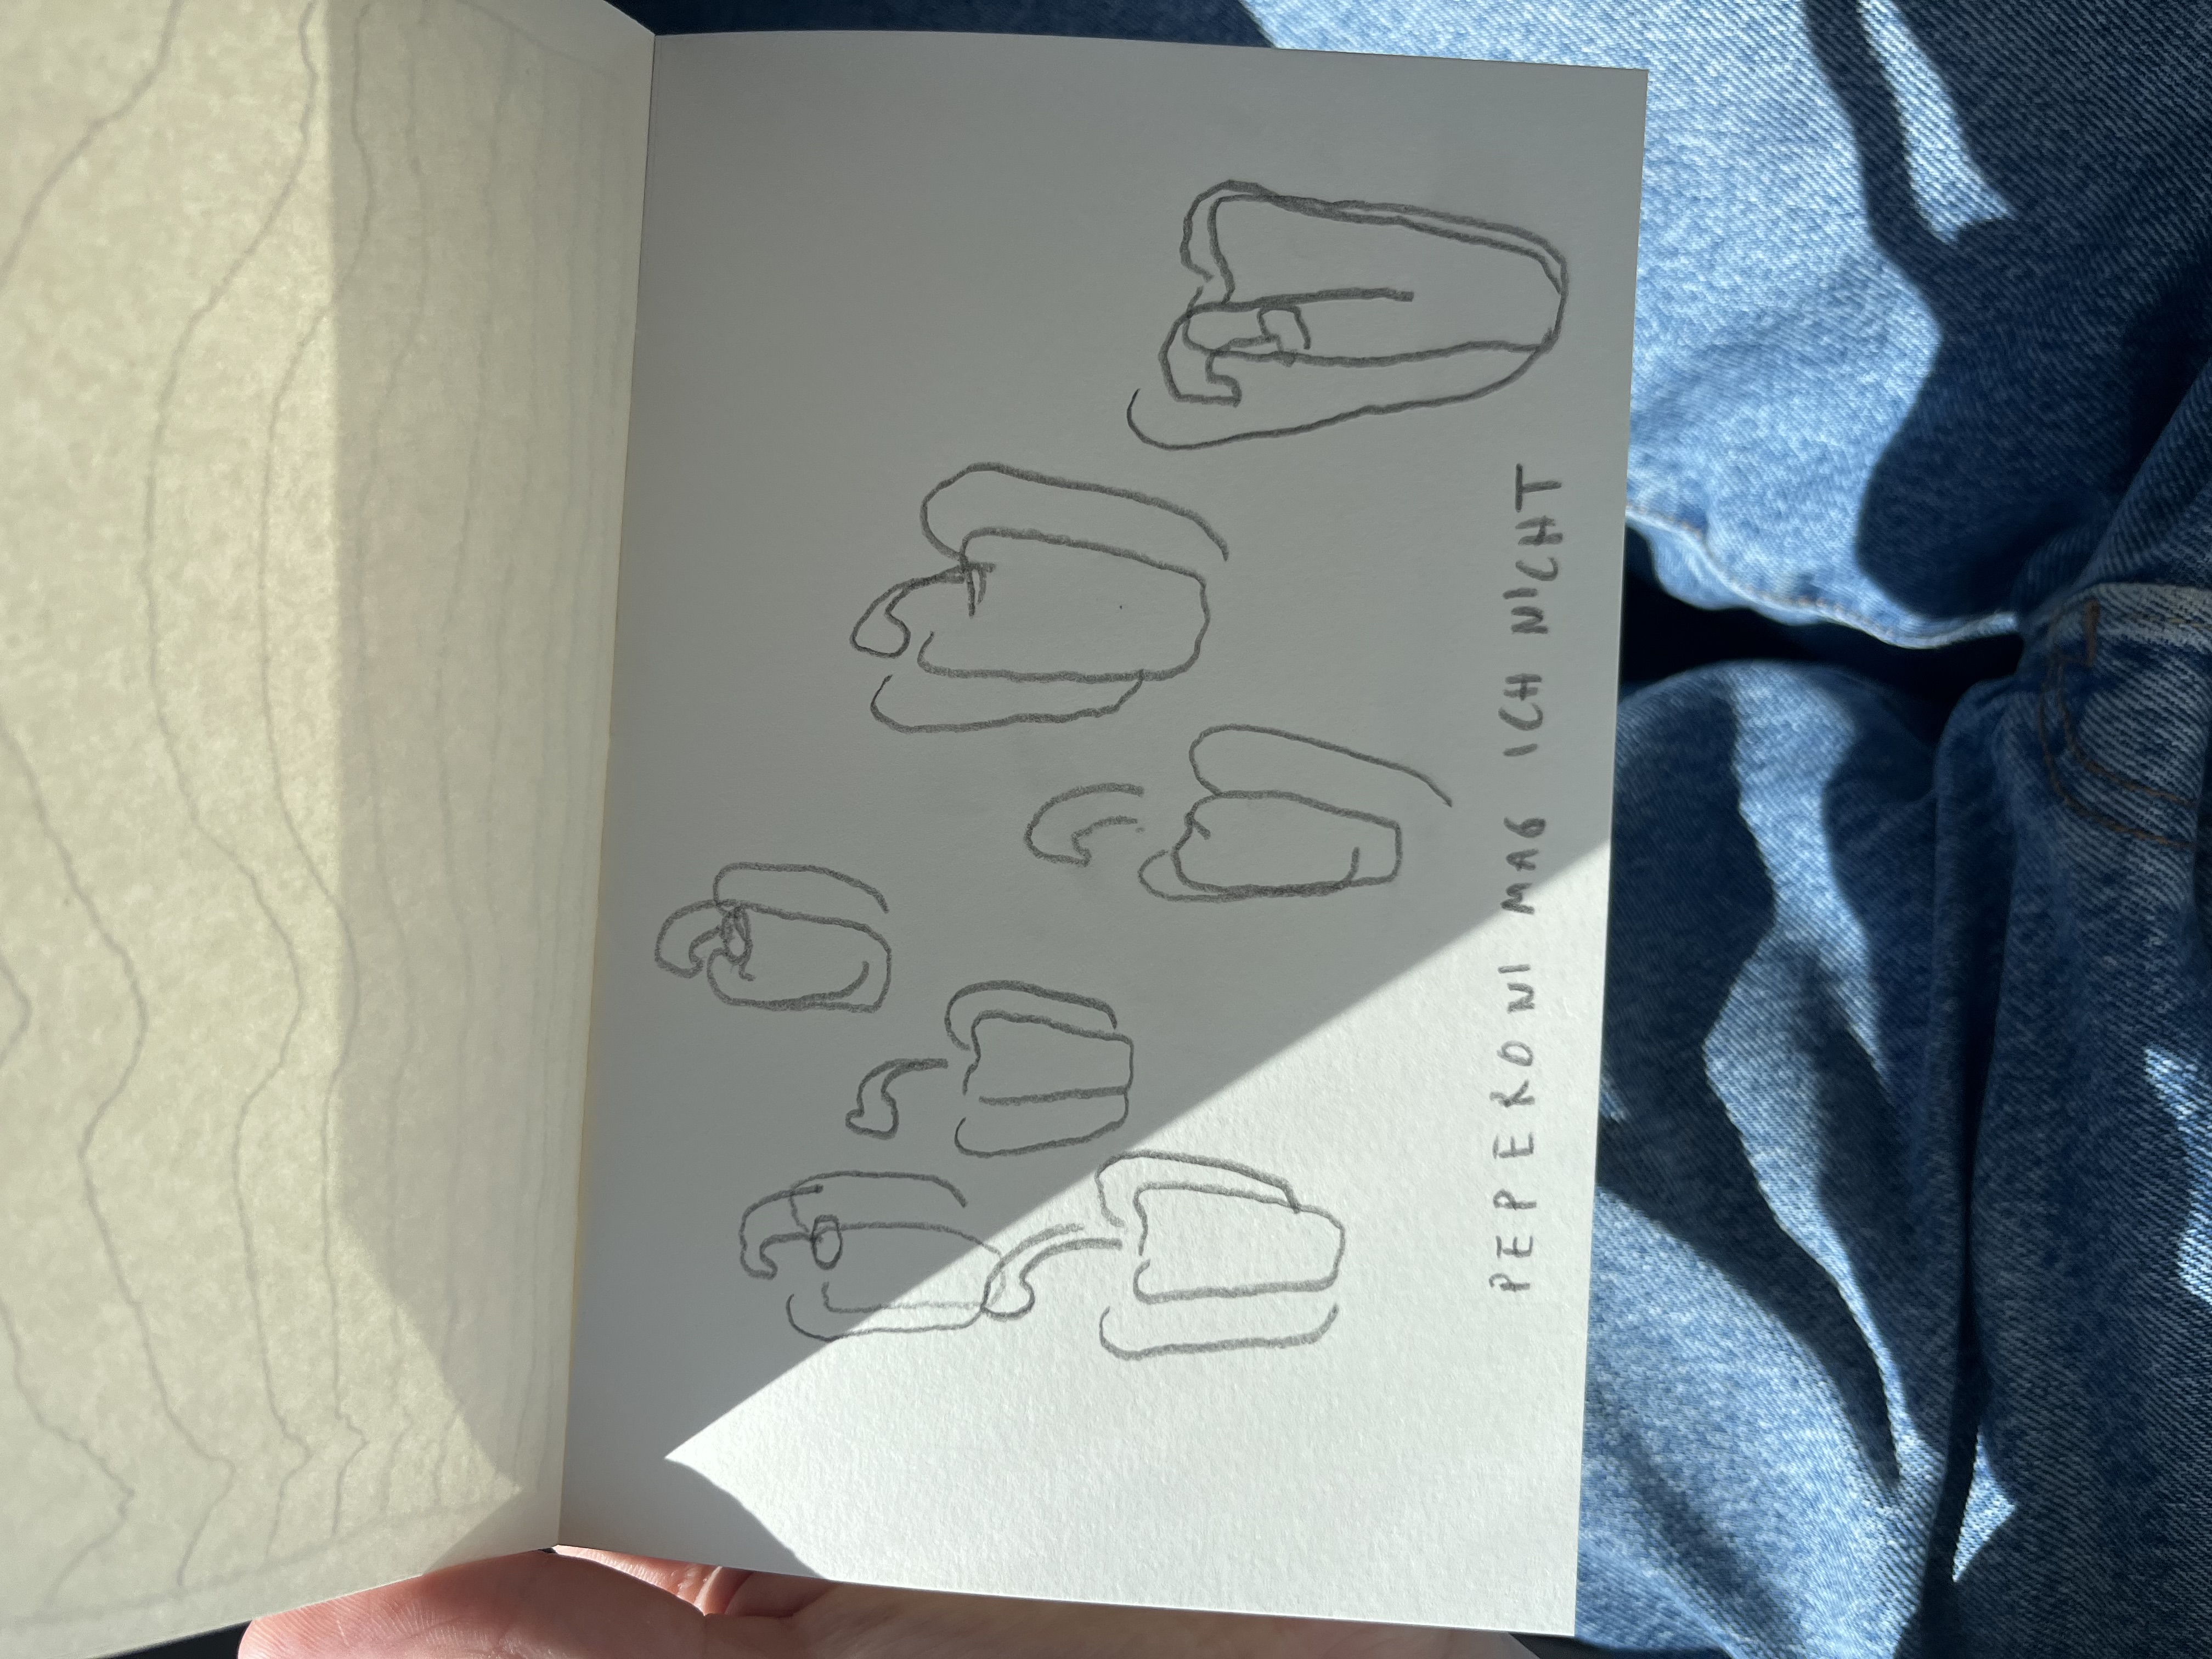 PEPERONI MAG ICH NICHT